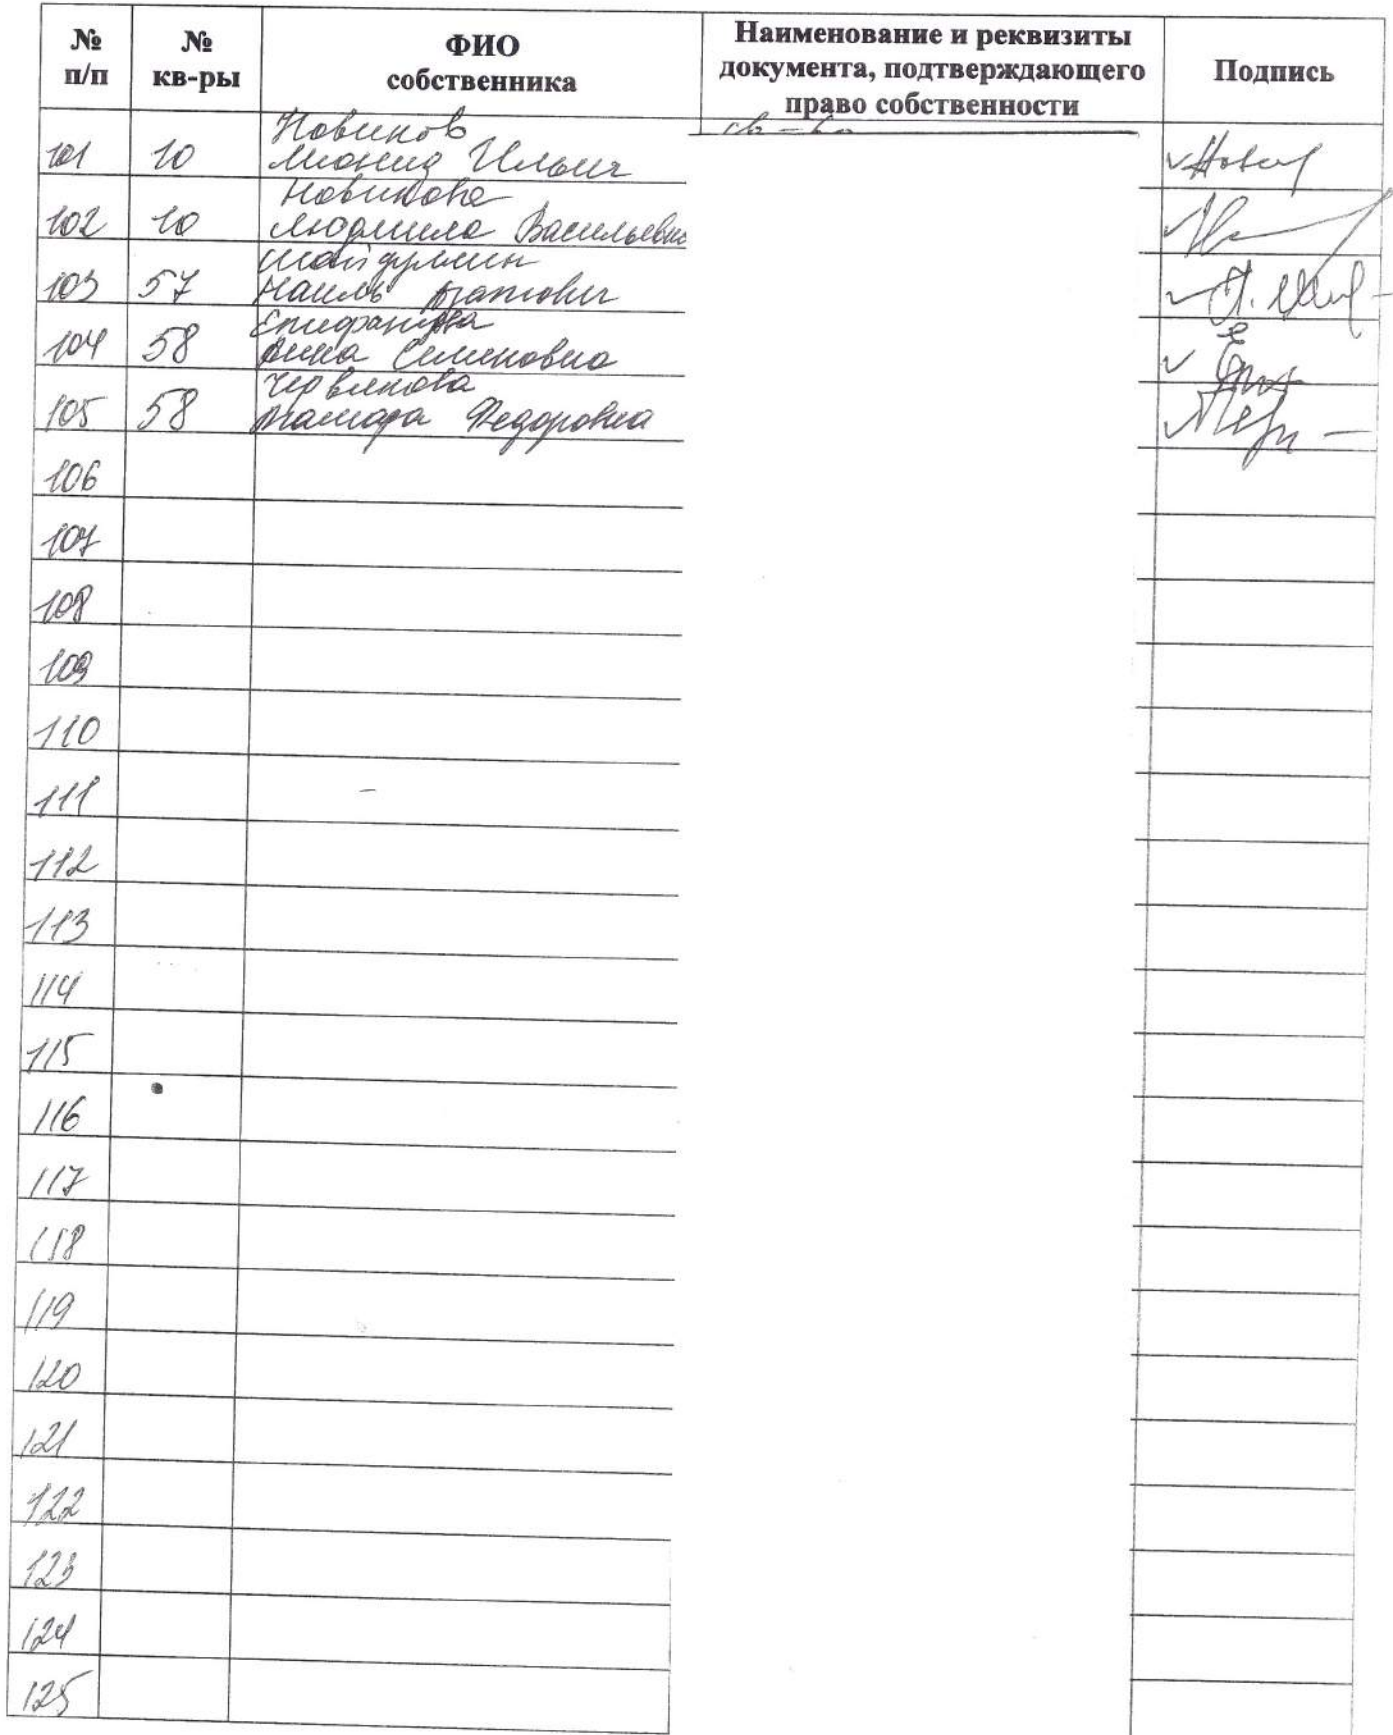 № п/п
№ кв-ры
ФИО собственника
Наименование и реквизиты документа, подтверждающего право собственности
Подпись
Новиков
101 10 Леонид Ильич
Новикова
102 10 Людмила Васильевна
103 57 Наиль
Епифанова
104 58 Анна Семеновна
Червякова
105 58 Тамара Федоровна
106
107
108
109
110
111
112
113
114
115
116
117
118
119
120
121
122
123
124
125